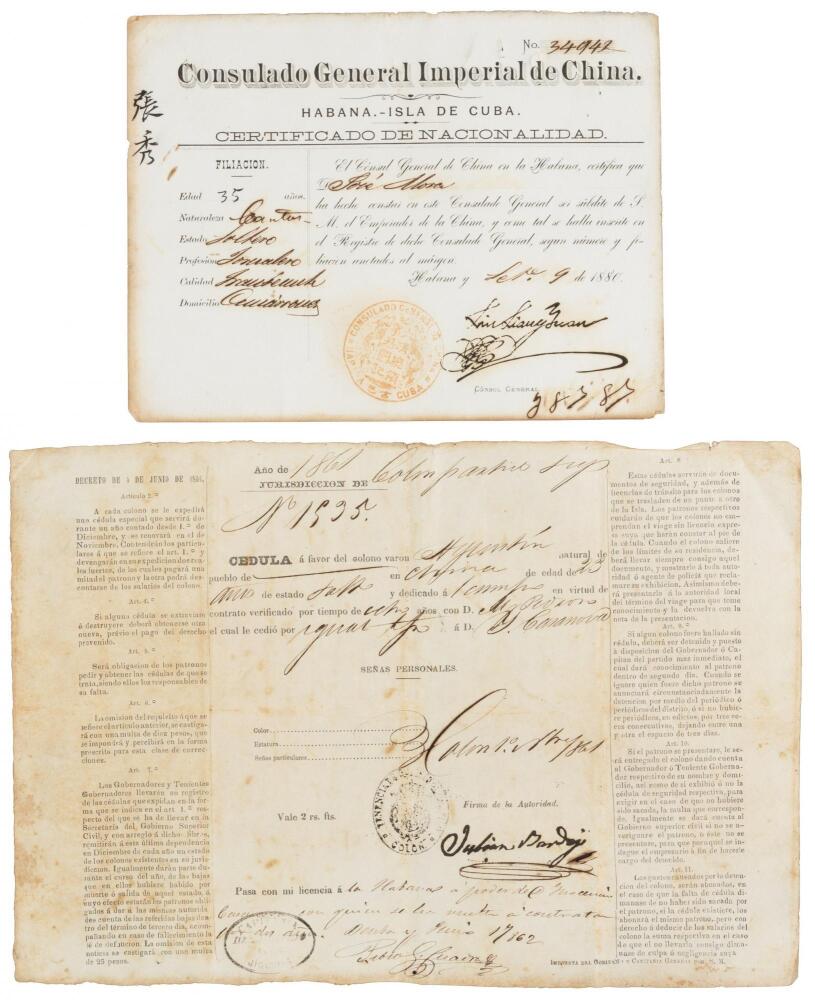 No. 34942
Consulado General Imperial de China.
HABANA.-ISLA DE CUBA.
CERTIFICADO DE NACIONALIDAD.
張秀
FILIACION.
Edad 35 años.
Naturaleza Canton
Estado Soltero
Profesion Jornalero
Calidad
Domicilio
El Cónsul General de China en la Habana, certifica que
D José Mora
ha hecho constar en este Consulado General ser súbdito de S.
M. el Emperador de la China, y como tal se halla inscrito en
el Registro de dicho Consulado General, segun número y fi-
liacion anotados al márgen.
Habana y Set. 9 de 1880.
CONSULADO GENERAL
CUBA
CÓNSUL GENERAL
DECRETO DE 4 DE JUNIO DE 1861.
Artículo 2.º
A cada colono se le expedirá
una cédula especial que servirá du-
rante un año contado desde 1.º de
Diciembre, y se renovará en el de
Noviembre. Contendrán los particula-
res á que se refiere el art. 1.º y
devengarán en su expedicion dos rea-
les fuertes, de los cuales pagará una
mitad el patrono y la otra podrá des-
contarse de los salarios del colono.
Art. 4.º
Si alguna cédula se extraviare
ó destruyere deberá obtenerse otra
nueva, prévio el pago del derecho
prevenido.
Art. 5.º
Será obligacion de los patronos
pedir y obtener las cédulas de que se
trata, siendo ellos los responsables de
su falta.
Art. 6.º
La omision del requisito á que se
refiere el artículo anterior, se castiga-
rá con una multa de diez pesos, que
se impondrá y percibirá en la forma
prescrita para esta clase de correc-
ciones.
Art. 7.º
Los Gobernadores y Tenientes
Gobernadores llevarán un registro
de las cédulas que expidan en la for-
ma que se indica en el art. 1.º res-
pecto del que se ha de llevar en la
Secretaría del Gobierno Superior
Civil, y con arreglo á dicho libro
remitirán á esta última dependencia
en Diciembre de cada año un estado
de los colonos existentes en su juris-
diccion. Igualmente darán parte du-
rante el curso del año, de las bajas
que en ellos hubiere habido por
muerte ó salida de aquel estado á
cuyo efecto estarán los patronos obli-
gados á dar á las mismas autorida-
des cuenta de las referidas bajas den-
tro del término de tercero dia, acom-
pañando en caso de fallecimiento la
fé de defuncion. La omision de esta
noticia se castigará con una multa
de 25 pesos.
Año de 1861
JURISDICCION DE Colon
Nº 1535.
CEDULA á favor del colono varon Agustin natural de
pueblo de en China de edad de 23
años de estado Solt y dedicado á campo en virtud de
contrato verificado por tiempo de ocho años con D.
el cual le cedió por igual á D. Casanova
SEÑAS PERSONALES.
Color
Estatura
Señas particulares
Colon 1º 1861
Vale 2 rs. fts.
COLON
Firma de la Autoridad.
Julian
Pasa con mi licencia á la Habana á poder de D
con quien se le contrata
dos Junio 17/862
Art. 8.º
Estas cédulas servirán de docu-
mentos de seguridad, y además de
licencias de tránsito para los colonos
que se trasladen de un punto á otro
de la Isla. Los patronos respectivos
cuidarán de que los colonos no em-
prendan el viage sin licencia expre-
sa suya que harán constar al pié de
la cédula. Cuando el colono saliere
de los límites de su residencia, de-
berá llevar siempre consigo aquel
documento, y mostrarlo á toda auto-
ridad ó agente de policía que recla-
mare su exhibicion. Asimismo deberá
presentarlo á la autoridad local del
término del viage para que tome
conocimiento y lo devuelva con la
nota de la presentacion.
Art. 9.º
Si algun colono fuere hallado sin
cédula, deberá ser detenido y puesto
á disposicion del Gobernador ó Ca-
pitan del partido mas inmediato, el
cual dará conocimiento al patrono
dentro de segundo dia. Cuando se
ignore quien fuese dicho patrono se
anunciará circunstanciadamente la
detencion por medio del periódico ó
periódicos del distrito, ó si no hubie-
re periódicos, en edictos, por tres ve-
ces consecutivas, dejando entre una
y otra el espacio de tres dias.
Art. 10.
Si el patrono se presentare, le se-
rá entregado el colono dando cuenta
al Gobernador ó Teniente Goberna-
dor respectivo de su nombre y domi-
cilio, así como de si exhibió ó no la
cédula de seguridad respectiva, para
exigir en el caso de que no hubiere
sido sacada, la multa que correspon-
da. Igualmente se dará cuenta al
Gobierno superior civil si no se a-
veriguare el patrono, ó éste no se
presentare, para que por aquel se in-
dague el empresario á fin de hacerle
cargo del detenido.
Art. 11.
Los gastos causados por la deten-
cion del colono, serán abonados, en
el caso de que la falta de cédula di-
manase de no haber sido sacada por
el patrono, si la cédula existiere, los
abonará el mismo patrono, pero con
derecho á deducir de los salarios del
colono la suma respectiva en el caso
de que el no llevarla consigo dima-
nase de culpa ó negligencia suya
IMPRENTA DEL GOBIERNO Y CAPITANIA GENERAL POR S. M.